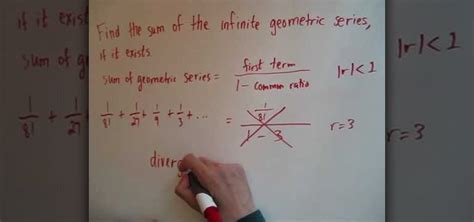 Find the sum of the infinite geometric series,
if it exists.
sum of geometric series = first term / 1 - common ratio |r| < 1
1/81 + 1/27 + 1/9 + 1/3 + ... = 1/81 / 1 - 3 r = 3
diverg